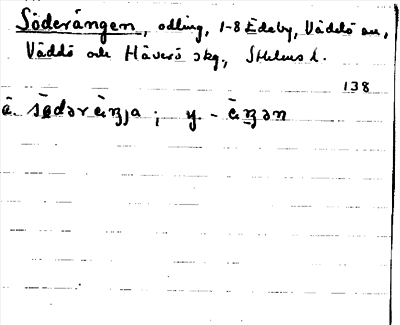 Söderängen, odling, 1-8 Edeby, Väddö sn,
Väddö och Häverö skg, Sthlms l.
138
ä. sö̀dəræ̀ŋɟa ; y - æ̀ŋən